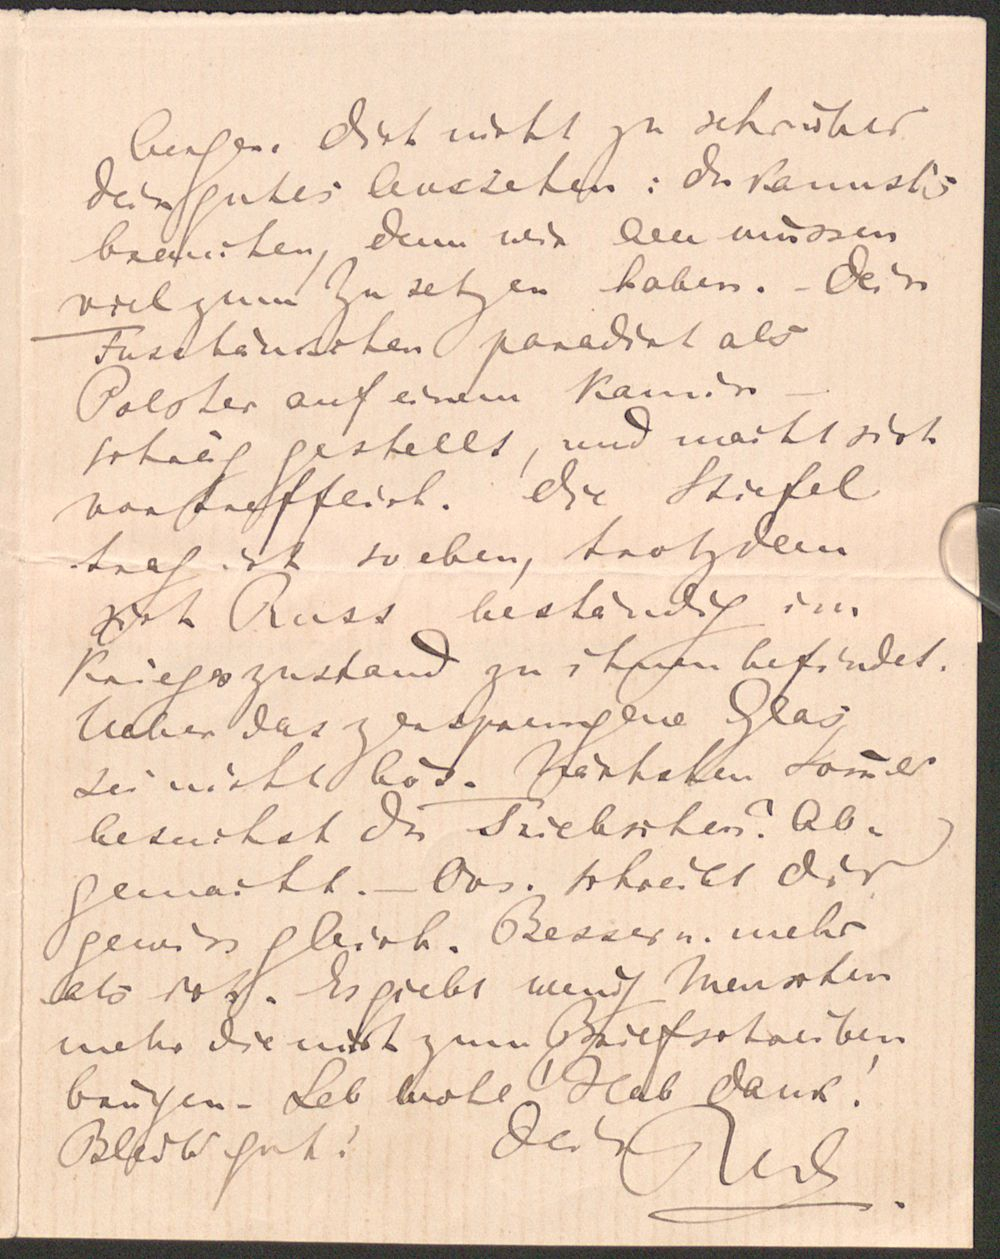 bergen. Dich nicht zu
dein gutes Aussehen: du kannst's
brauchen, denn wir alle müssen
viel zum Zusetzen haben. – Dein
paradirt als
Polster auf einem Kamin –
schräg gestellt, und macht sich
vortrefflich. Die Stiefel
trag ich soeben, trotzdem
sich Russ beständig im
Kriegszustand zu ihnen befindet.
Ueber das zersprungene Glas
sei nicht bös. Nächsten Som̅er
besuchst du Triebschen? Ab-
gemacht. – schreibt dir
gewiss gleich. Besser u. mehr
als ich. Es giebt wenig Menschen
mehr die mich zum Briefschreiben
bringen – Leb wohl! Hab Dank!
Bleib gut! Dein